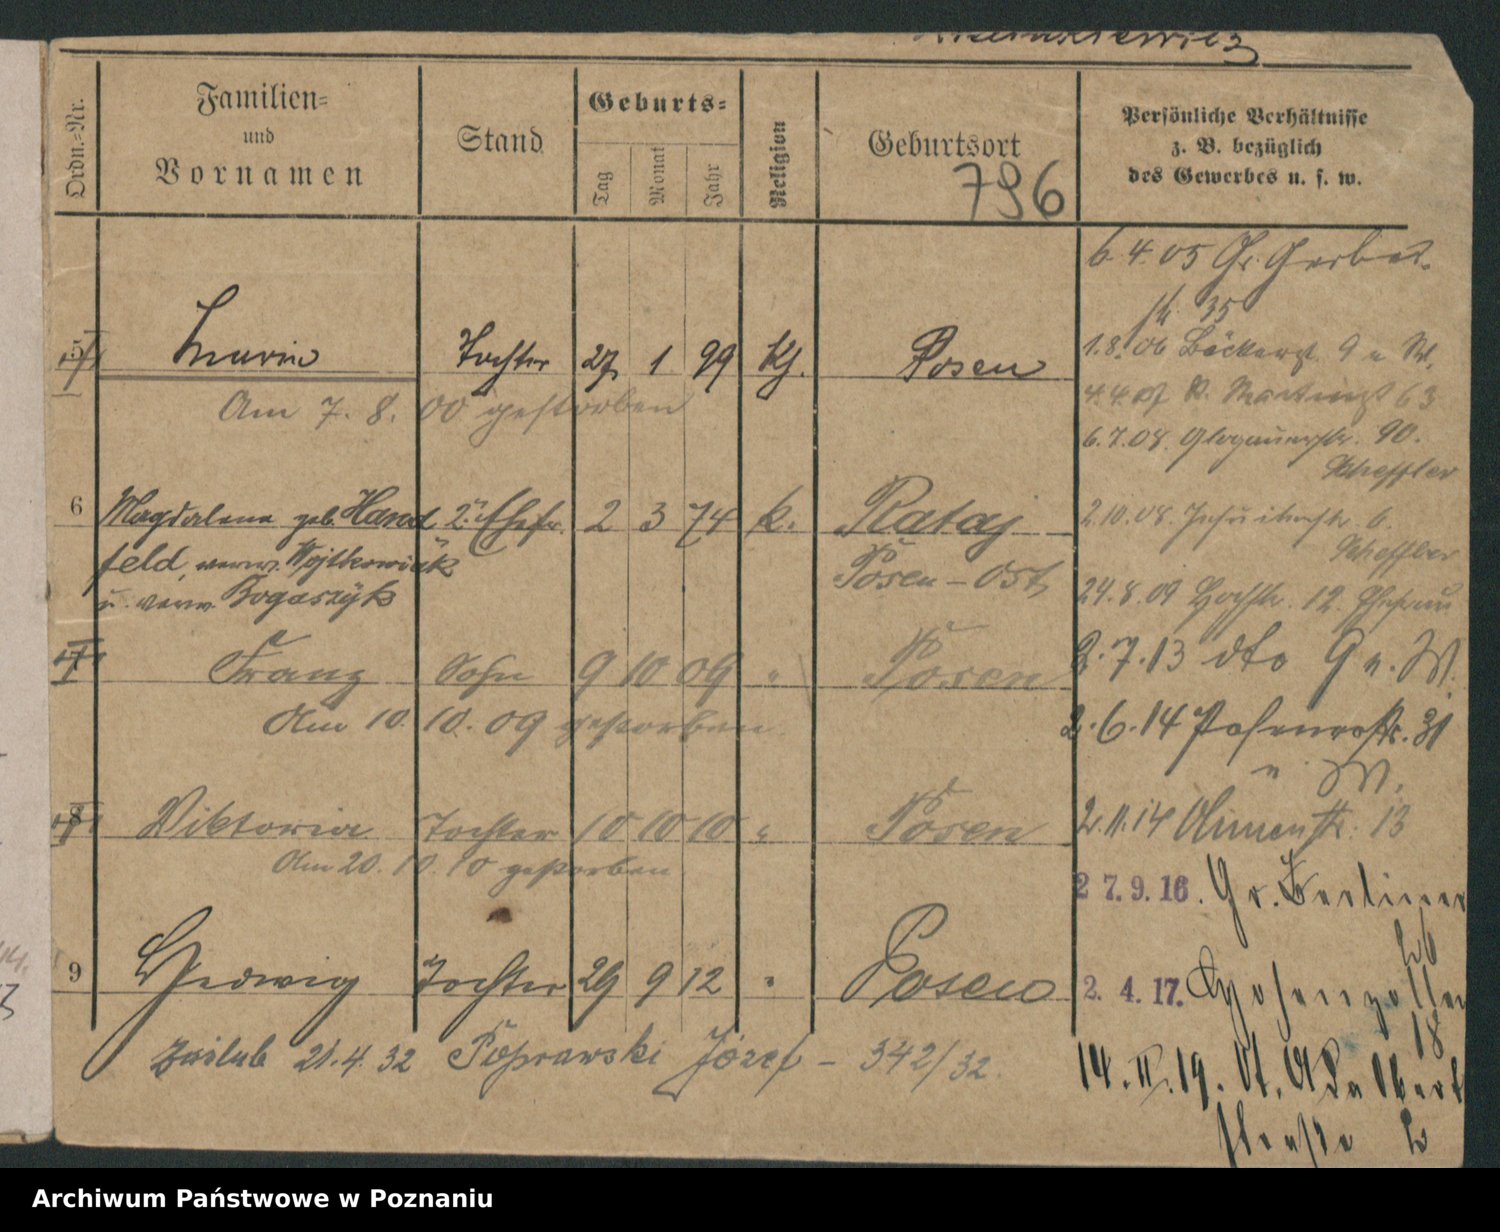 Ordn.=Nr.
Familien=
und
Vornamen
Stand
Geburts=
Tag
Monat
Jahr
Religion
Geburtsort
796
Persönliche Verhältnisse
z. B. bezüglich
des Gewerbes u. s. w.
6.4.05 Gr. Gerber
str 35
5 Maria Tochter 27 1 99 kj. Posen
Am 7. 8. 00 gestorben
1.8.06 Bäckerst. 9 u W.
4.4.07 St. Martinst 63
6.7.08. Glogauerstr. 90.
Scheffler
6 Magdalena geb. Hand 2. Ehefr. 2 3 74 k. Rataj
feld, verw. Wojtkowiak Posen-Ost
u. verw. Bogaszyk
2.10.08. Jesuitenstr. 6.
Scheffler
24.8.09 12.
7 Franz Sohn 9 10 09 " Posen
Am 10. 10. 09 gestorben
2.7.13 dto G u. W.
2.6.14 31
u W.
8 Viktoria Tochter 10 10 10 " Posen
Am 20. 10. 10 gestorben
2.11.14 13
27.9.16. Gr. Berliner
26
9 Hedwig Tochter 29 9 12 " Posen
2.4.17. Hohenzollern
18
zaślub 21.4.32 Poprawski Józef - 342/32.
14.II.19. St. Adalbert
strasse 2
Archiwum Państwowe w Poznaniu